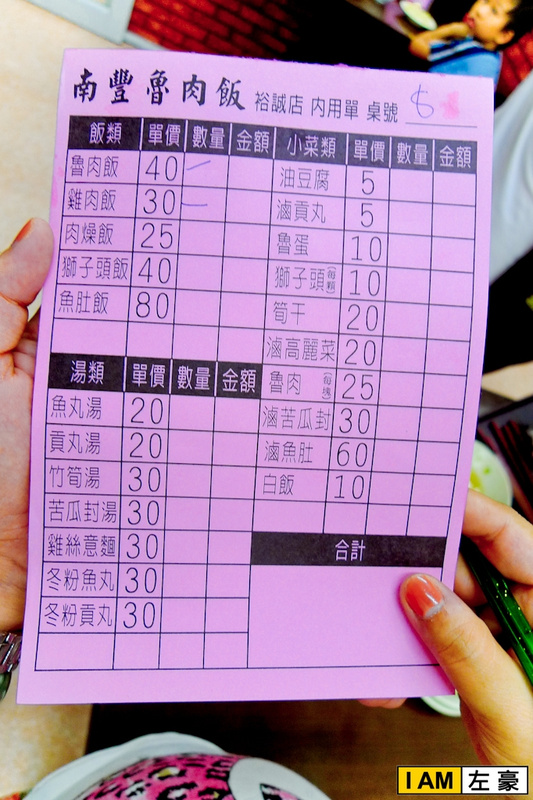 南豐魯肉飯 裕誠店 內用單 桌號 6
飯類 單價 數量 金額
魯肉飯 40 一
雞肉飯 30 一
肉燥飯 25
獅子頭飯 40
魚肚飯 80
湯類 單價 數量 金額
魚丸湯 20
貢丸湯 20
竹筍湯 30
苦瓜封湯 30
雞絲意麵 30
冬粉魚丸 30
冬粉貢丸 30
小菜類 單價 數量 金額
油豆腐 5
滷貢丸 5
魯蛋 10
獅子頭(每顆) 10
筍干 20
滷高麗菜 20
魯肉(每塊) 25
滷苦瓜封 30
滷魚肚 60
白飯 10
合計
I AM 左豪